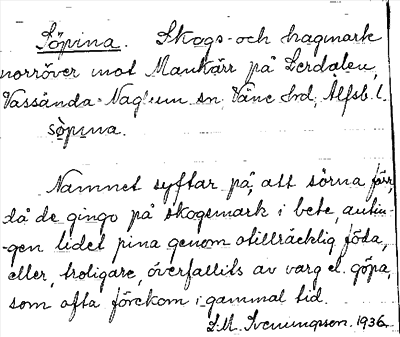 Söpina. Skogs- och hagmark
norröver mot Mankärr på Lerdalen,
Vassända-Naglum sn, Väne hrd, Älfsb. l.
söpina.
Namnet syftar på, att sörna förr,
då de gingo på skogsmark i bete, antin-
-gen lidet pina genom otillräcklig föda,
eller, troligare, överfallits av varg el. göpa,
som ofta förekom i gammal tid.
1936.